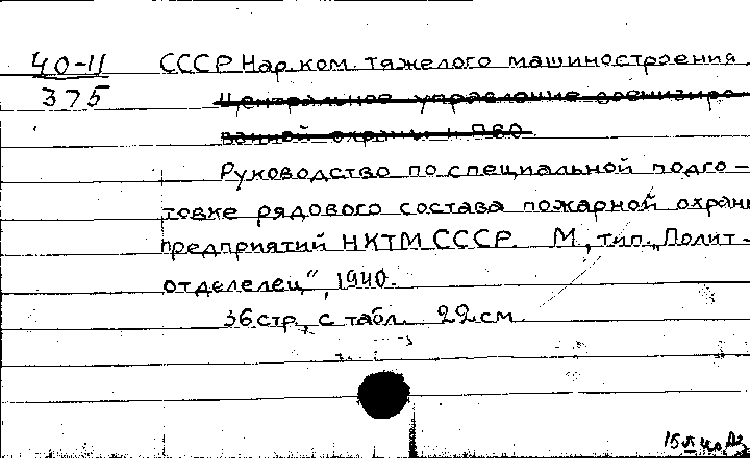 40-11
375
СССР Нар. ком. тяжелого машиностроения.
Центральное управление военизиро-
ванной охраны и ПВО
Руководство по специальной подго-
товке рядового состава пожарной охраны
предприятий НКТМ СССР. М., тип. „Полит-
отделелец“, 1940.
36 стр., с табл. 22 см.